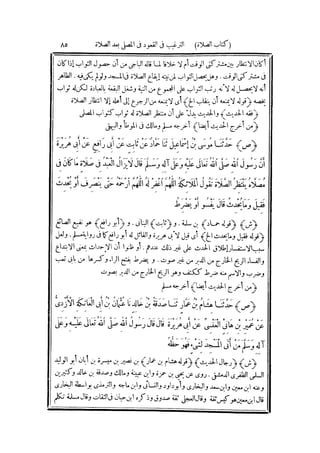 (كتاب الصلاة) الترغيب فى القعود فى المصلى بعد الصلاة ٨٥
أكان الانتظار بين مشتركتى الوقت أم لا خلافا لما قاله الباجى من أن حصول الثواب إذا كان
فى مشتركتى الوقت. وهل يحصل الثواب لمن نيته إيقاع الصلاة فى المسجد ولو لم يكن فيه. الظاهر
أنه لا يحصل له لأنه رتب الثواب على المجموع من النية وشغل البقعة بالعبادة لكن له ثواب
يخصه ﴿قوله لا يمنعه أن ينقلب الخ﴾ أى لا يمنعه من الرجوع إلى أهله إلا انتظار الصلاة
﴿فقه الحديث﴾ والحديث يدل على أن منتظر الصلاة له ثواب كثواب المصلى
﴿من أخرج الحديث أيضا﴾ أخرجه مسلم ومالك فى الموطأ والبيهقى
﴿ص﴾ حدثنا موسى بن إسماعيل ثنا حماد عن ثابت عن أبى رافع عن أبى هريرة
أن رسول الله صلى الله تعالى عليه وعلى آله وسلم قال لا يزال العبد فى صلاة ما كان فى
مصلاه ينتظر الصلاة تقول الملائكة اللهم اغفر له اللهم ارحمه حتى ينصرف أو يحدث
فقيل وما يحدث قال يفسو أو يضرط
﴿ش﴾ ﴿قوله حماد﴾ بن سلمة. و﴿ثابت﴾ البنانى. و﴿أبو رافع﴾ هو نفيع الصائغ
﴿قوله فقيل وما يحدث الخ﴾ أى قيل لأبى هريرة والقائل له أبو رافع كما فى رواية مسلم. ولعل
سبب الاستفسار إطلاق الحدث على غير ذلك عندهم. أو ظنوا أن الإحداث بمعنى الابتداع
والفساء الريح الخارج من الدبر من غير صوت. و يضرط بفتح الراء وكسرها من بابى تعب
وضرب والاسم منه ضرط ككتف وهو الريح الخارج من الدبر بصوت
﴿من أخرج الحديث أيضا﴾ أخرجه مسلم
﴿ص﴾ حدثنا هشام بن عمار ثنا صدقة بن خالد نا عثمان بن أبى العاتكة الأزدى
عن عمير بن هانئ العنسى عن أبى هريرة قال قال رسول الله صلى الله تعالى عليه وعلى
آله وسلم من أتى المسجد لشىء فهو حظه
﴿ش﴾ ﴿رجال الحديث﴾ ﴿قوله هشام بن عمار﴾ بن نصير بن ميسرة بن أبان أبو الوليد
السلمى الظفرى الدمشقى. روى عن يحيى بن حمزة وابن عيينة ومالك وصدقة بن خالد وكثيرين
وعنه ابن معين وابن سعد والبخارى وأبو داود والنسائى وابن ماجه والترمذى بواسطة البخارى
قال ابن معين هو كيس ثقة وقال العجلى ثقة صدوق وذكره ابن حبان فى الثقات وقال مسلمة تكلم